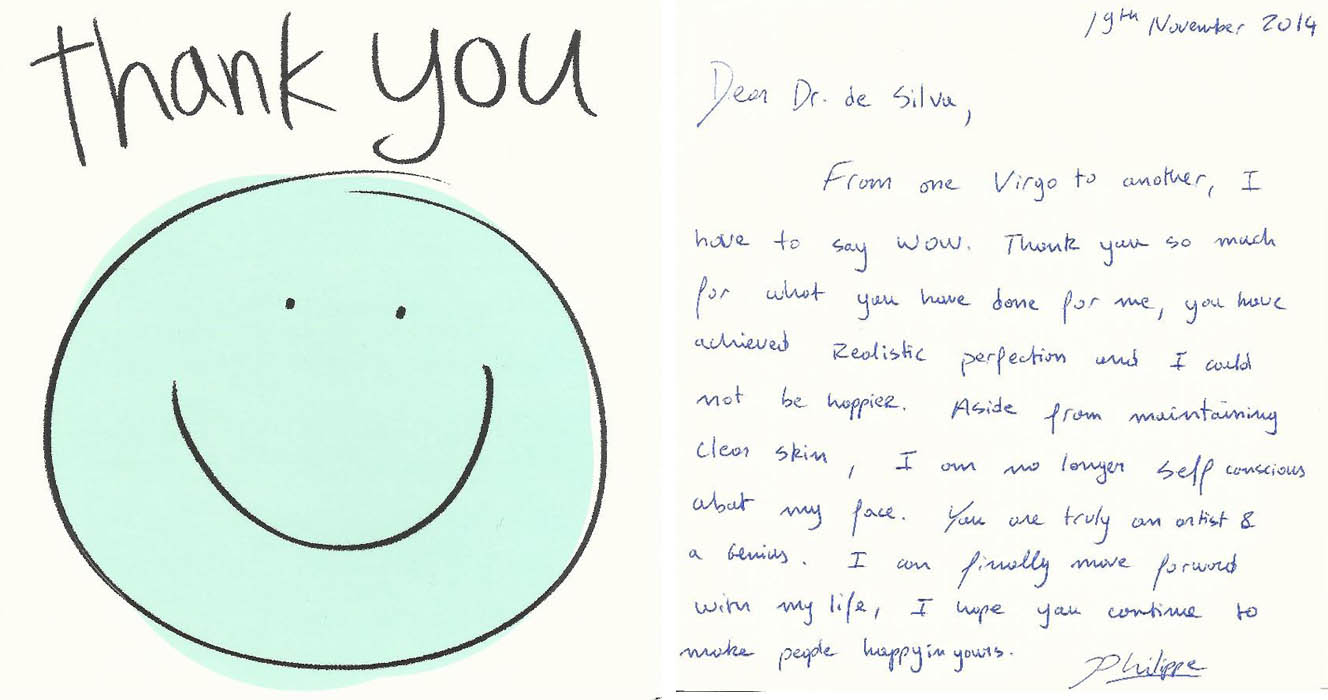 thank you
19th November 2014
Dear Dr. de Silva,
From one Virgo to another, I
have to say wow. Thank you so much
for what you have done for me, you have
achieved Realistic perfection and I could
not be happier. Aside from maintaining
clear skin, I am no longer self conscious
about my face. You are truly an artist &
a Genius. I can finally move forward
with my life, I hope you continue to
make people happy in yours.
Philippe